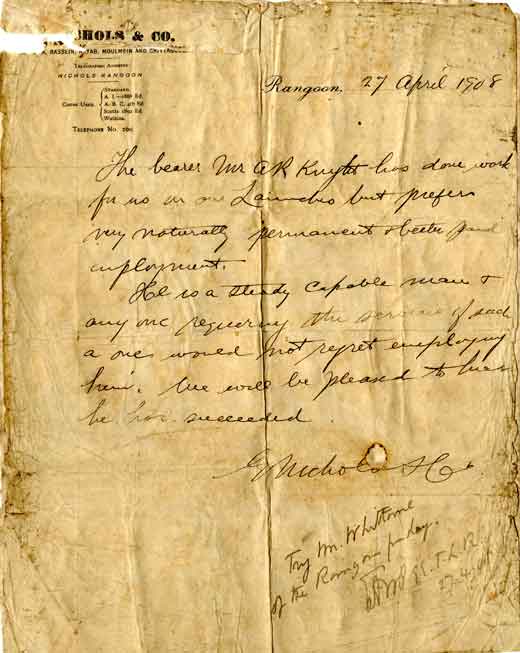 NICHOLS & CO.
BASSEIN, AKYAB, MOULMEIN AND
TELEGRAPHIC ADDRESS
NICHOLS RANGOON
CODES USED.
STANDARD.
A. I.—1888 Ed.
A. B. C. 4th Ed
Scotts 1802 Ed.
Watkins.
TELEPHONE No.
Rangoon, 27 April 1908
The bearer Mr A R Knight has done work
for us on our Launches but prefers
very naturally permanent & better paid
employment.
He is a steady capable man &
any one requiring the services of such
a one would not regret employing
him. We will be pleased to hear
he has succeeded.
Nichols & Co.
Try Mr. Whittome
of the Rangoon